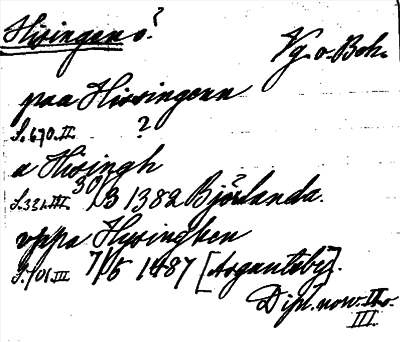 Hisingens?
Vg. o. Boh.
paa Hissingenn
S. 670. II. ?
a Hisingh
S. 331. III. 30/3 1382 Björlanda.
vppa Hysinghen
S. 101. III 7/5 1487 [Asgautsby].
Dipl. norv. II o.
III.